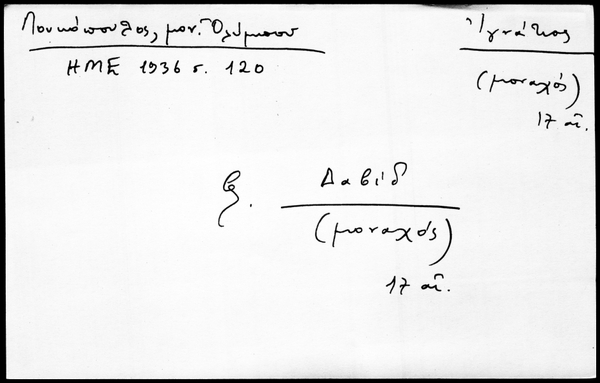 Λουκόπουλος, μον. Ὀλύμπου
ΗΜΕ 1936 σ. 120
Ἰγνάτιος
(μοναχός)
17 αἰ.
Βλ. Δαβίδ
(μοναχός)
17 αἰ.